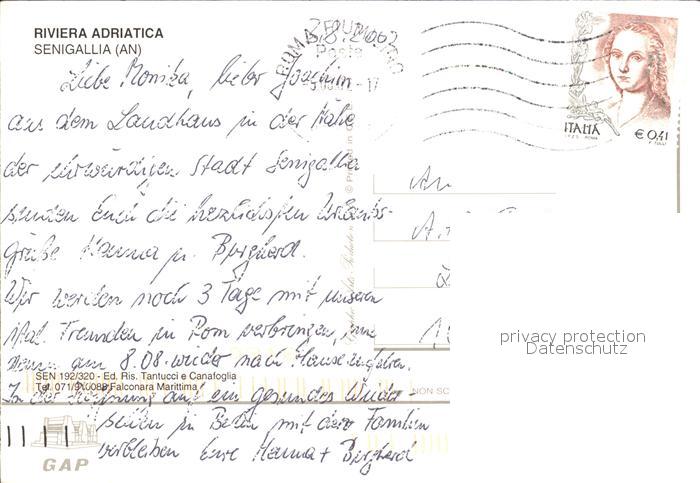 RIVIERA ADRIATICA
SENIGALLIA (AN)
3.8.2002
ROMA FIUMICINO
Poste
-17
ITALIA
€ 0,41
Liebe Monika, lieber Joachim
aus dem Landhaus in der Nähe
der ehrwürdigen Stadt Senigallia
senden Euch die herzlichsten Urlaubs-
grüße Hanna u. Burghard.
Wir werden noch 3 Tage mit unseren
ital. Freunden in Rom verbringen,
dann am 8.08. wieder nach Hause
In der Hoffnung auf ein gesundes Wieder-
sehen in Berlin mit den Familien
verbleiben Eure Hanna + Burghard
© Printed in
An
privacy protection
Datenschutz
SEN 192/320 - Ed. Ris. Tantucci e Canafoglia
Tel. 071/910088 Falconara Marittima
NON SC
GAP